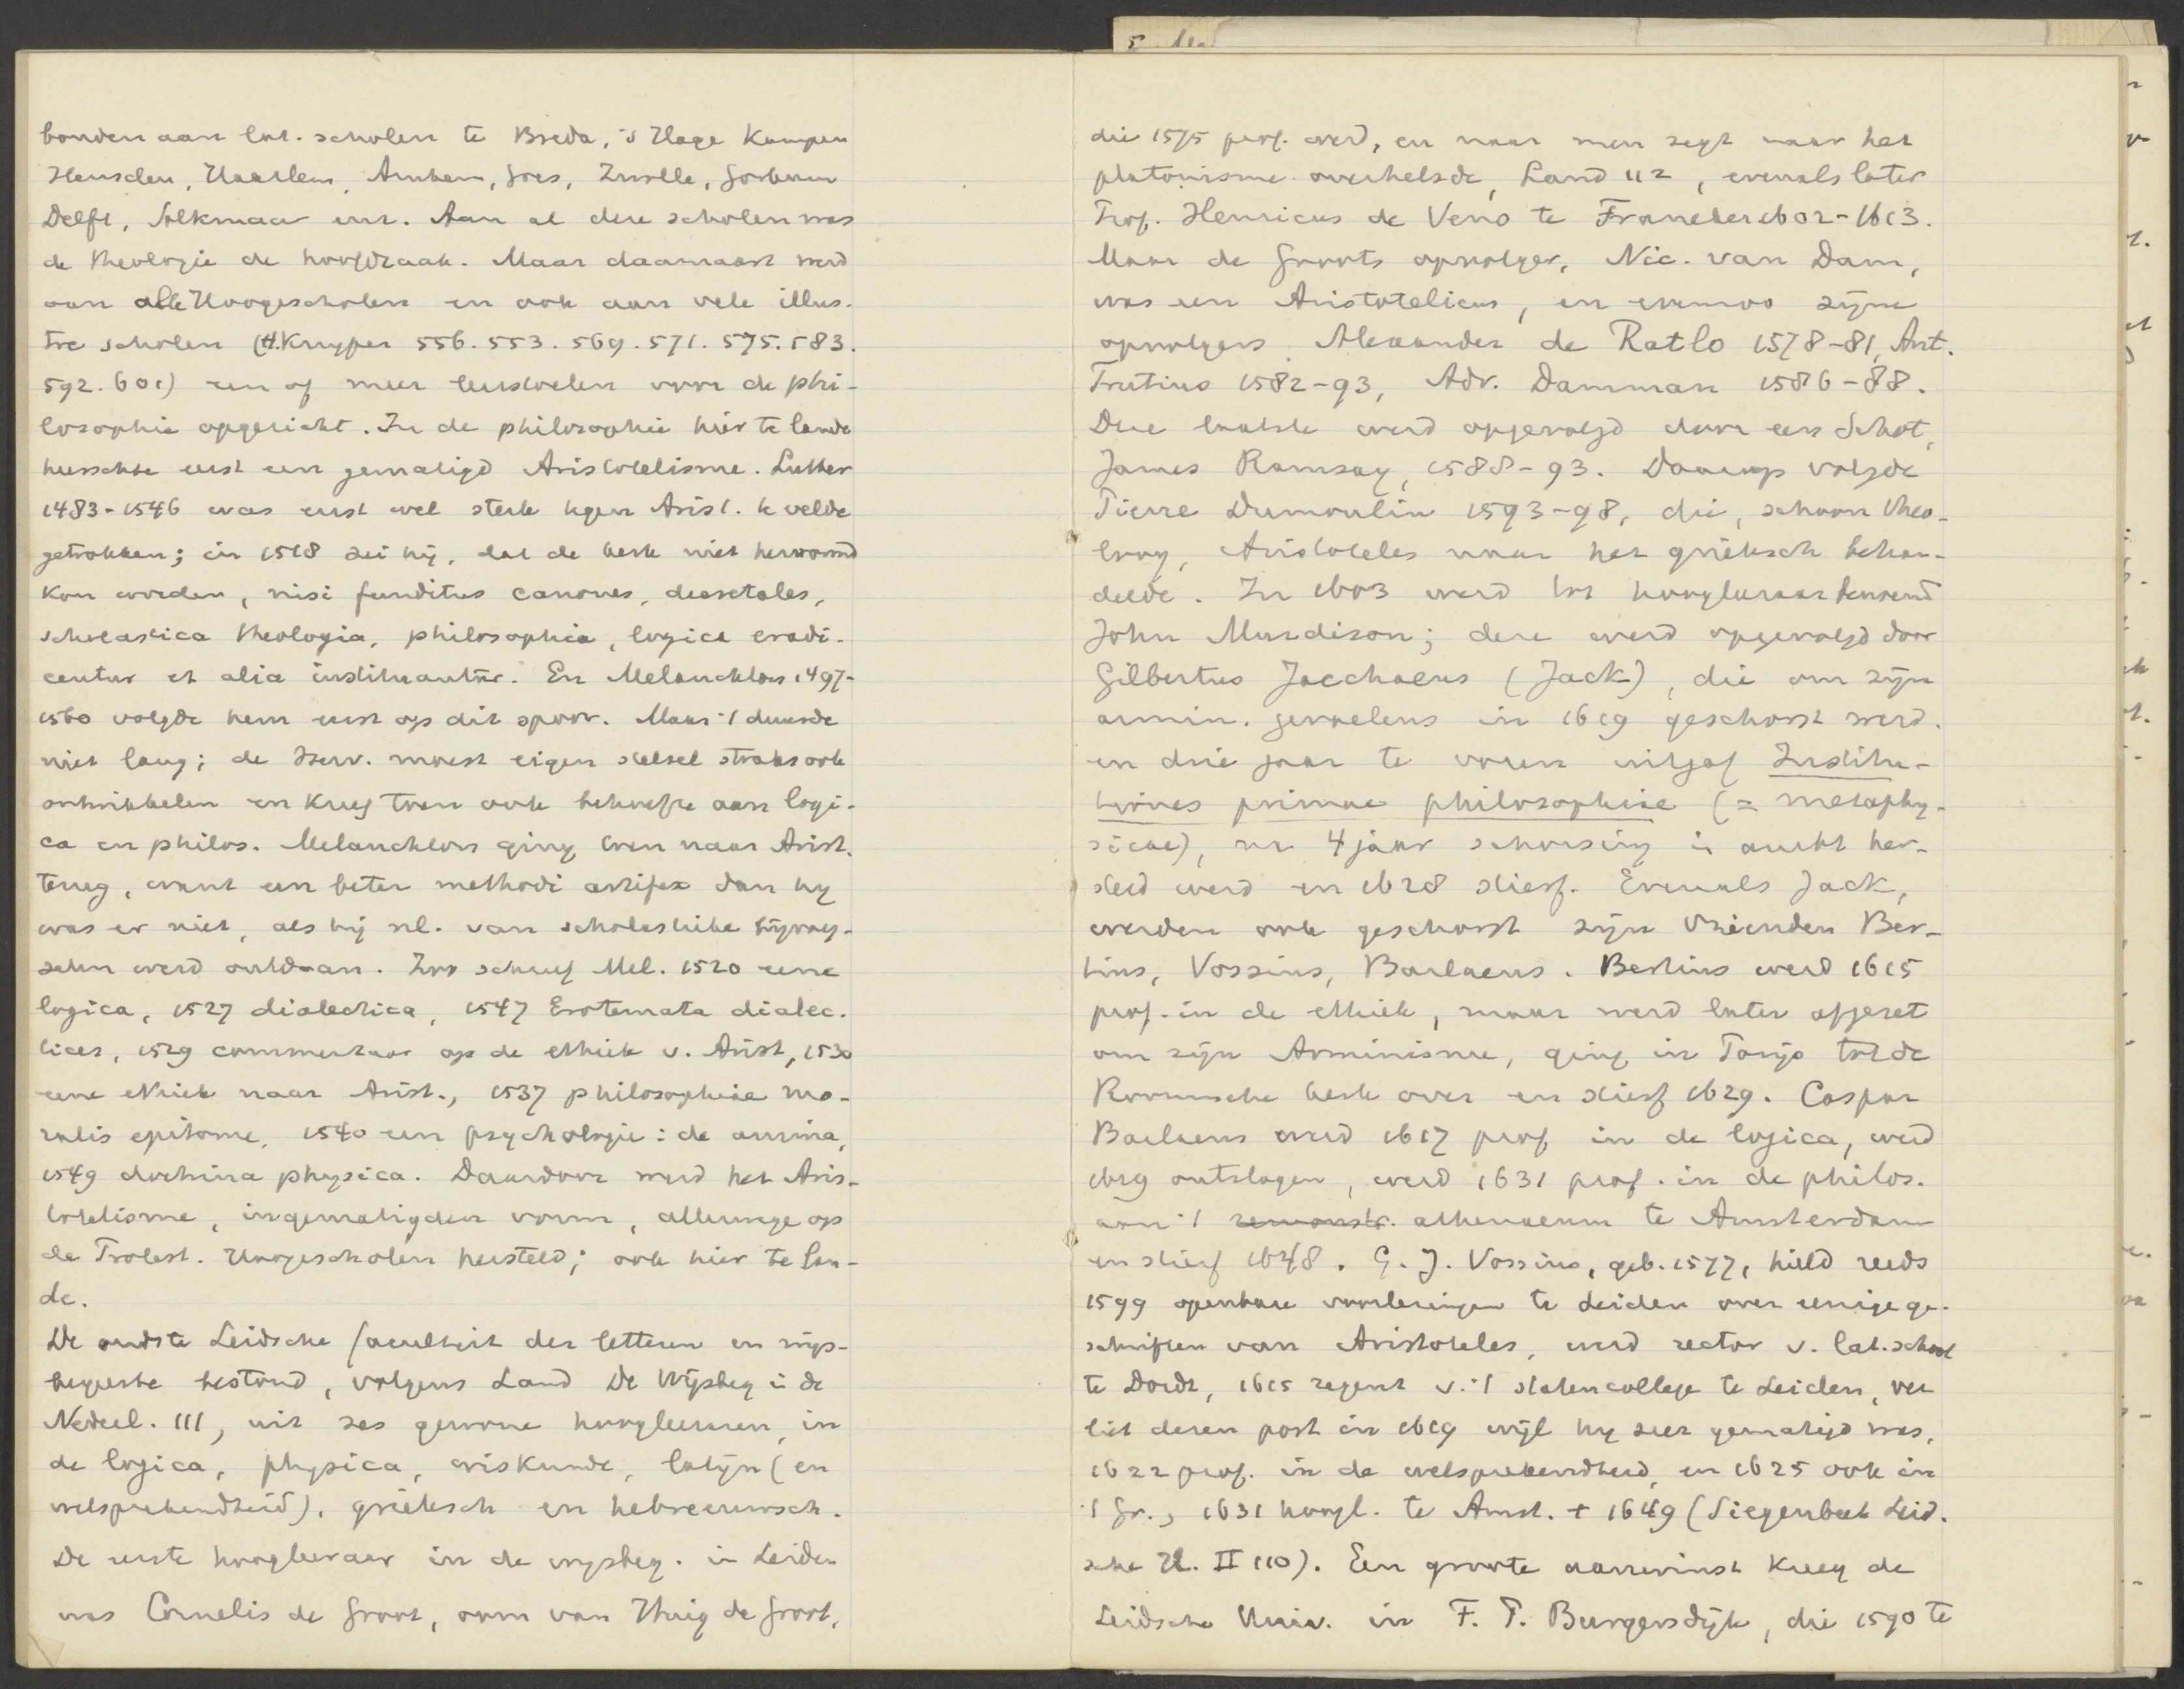 bonden aan lat. scholen te Breda, 's Hage Kampen
Heusden, Haarlem, Arnhem, Goes, Zwolle, Gorkum
Delft, Alkmaar enz. Aan al deze scholen was
de theologie de hoofdzaak. Maar daarnaast werd
aan alle Hoogescholen en ook aan vele illus-
tre scholen (H.Kuyper 556. 553. 569. 571. 575. 583.
592. 601) een of meer leerstoelen voor de phi-
losophie opgericht. In de philosophie hier te lande
heerschte eerst een gematigd Aristotelisme. Luther
1483-1546 was eerst wel sterk tegen Arist. te velde
getrokken; in 1518 zei hij, dat de kerk niet hervormd
kon worden, nisi funditus canones, decretales,
scholastica theologia, philosophia, logica eradi-
centur et alia instituantur. En Melanchton 1497-
1560 volgde hem eerst op dit spoor. Maar 't duurde
niet lang; de Herv. moest eigen stelsel straks ook
ontwikkelen en kreeg toen ook behoefte aan logi-
ca en philos. Melanchton ging toen naar Arist.
terug, want een beter methodi artifex dan hy
was er niet, als hij nl. van scholastieke bijvoeg-
selen werd ontdaan. Zoo schreef Mel. 1520 eene
logica, 1527 dialectica, 1547 Erotemata dialec-
tices, 1529 commentaar op de ethiek v. Arist, 1530
eene ethiek naar Arist., 1537 philosophiae mo-
ralis epitome, 1540 een psychologie: de anima,
1549 doctrina physica. Daardoor werd het Aris-
totelisme, in gematigden vorm, allerwege op
de Protest. Hoogescholen hersteld; ook hier te lan-
de.
De oudste Leidsche faculteit der letteren en wijs-
begeerte bestond, volgens Land De Wijsbeg in de
Nederl. 111, uit zes gewone hoogleeraren, in
de logica, physica, wiskunde, latijn (en
welsprekendheid), grieksch en hebreeuwsch.
De eerste hoogleeraar in de wijsbeg. in Leiden
was Cornelis de Groot, oom van Huig de Groot,
die 1575 prof. werd, en naar men zegt naar het
platonisme overhelsde, Land 112, evenals later
Prof. Henricus de Veno te Franeker 1602-1613.
Maar de Groots opvolger, Nic. van Dam,
was een Aristotelicus, en evenzoo zijne
opvolgers Alexander de Ratlo 1578-81, Ant.
Trutius 1582-93, Adr. Damman 1586-88.
Deze laatste werd opgevolgd door een Schot,
James Ramsay, 1588-93. Daarop volgde
Pierre Dumoulin 1593-98, die, schoon theo-
loog, Aristoteles naar het grieksch behan-
delde. In 1603 werd tot hoogleeraar benoemd
John Murdison; deze werd opgevolgd door
Gilbertus Jacchaeus (Jack), die om zijn
armin. gevoelens in 1619 geschorst werd.
en drie jaar te voren uitgaf Institu-
tiones primae philosophiae (= metaphy-
sicae), na 4 jaar schorsing in ambt her-
steld werd en 1628 stierf. Evenals Jack,
werden ook geschorst zijn vrienden Ber-
tius, Vossius, Barlaeus. Bertius werd 1615
prof. in de ethiek, maar werd later afgezet
om zijn Arminisme, ging in Parijs tot de
Roomsche kerk over en stierf 1629. Caspar
Barlaeus werd 1617 prof in de logica, werd
1619 ontslagen, werd 1631 prof. in de philos.
aan 't remonstr. athenaeum te Amsterdam
en stierf 1648. G. J. Vossius, geb. 1577, hield reeds
1599 openbare voorlezingen te Leiden over eenige ge-
schriften van Aristoteles, werd rector v. lat. school
te Dordt, 1615 regent v. 't statencollege te Leiden, ver
liet dezen post in 1619 wijl hy zeer gematigd was,
1622 prof. in de welsprekendheid, en 1625 ook in
't Gr., 1631 hoogl. te Amst. + 1649 (Siegenbeek Leid.
sche H. II 110). Een groote aanwinst kreeg de
Leidsche Univ. in F. P. Burgersdijk, die 1590 te